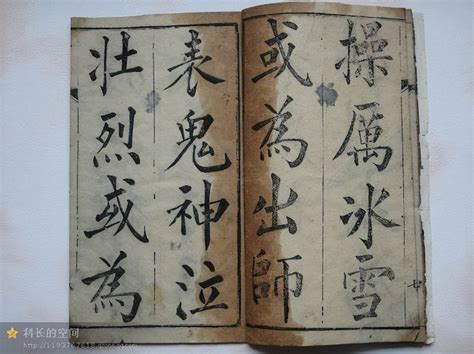 操厲冰雪
或為出師
表鬼神泣
壯烈或為
科长的空间